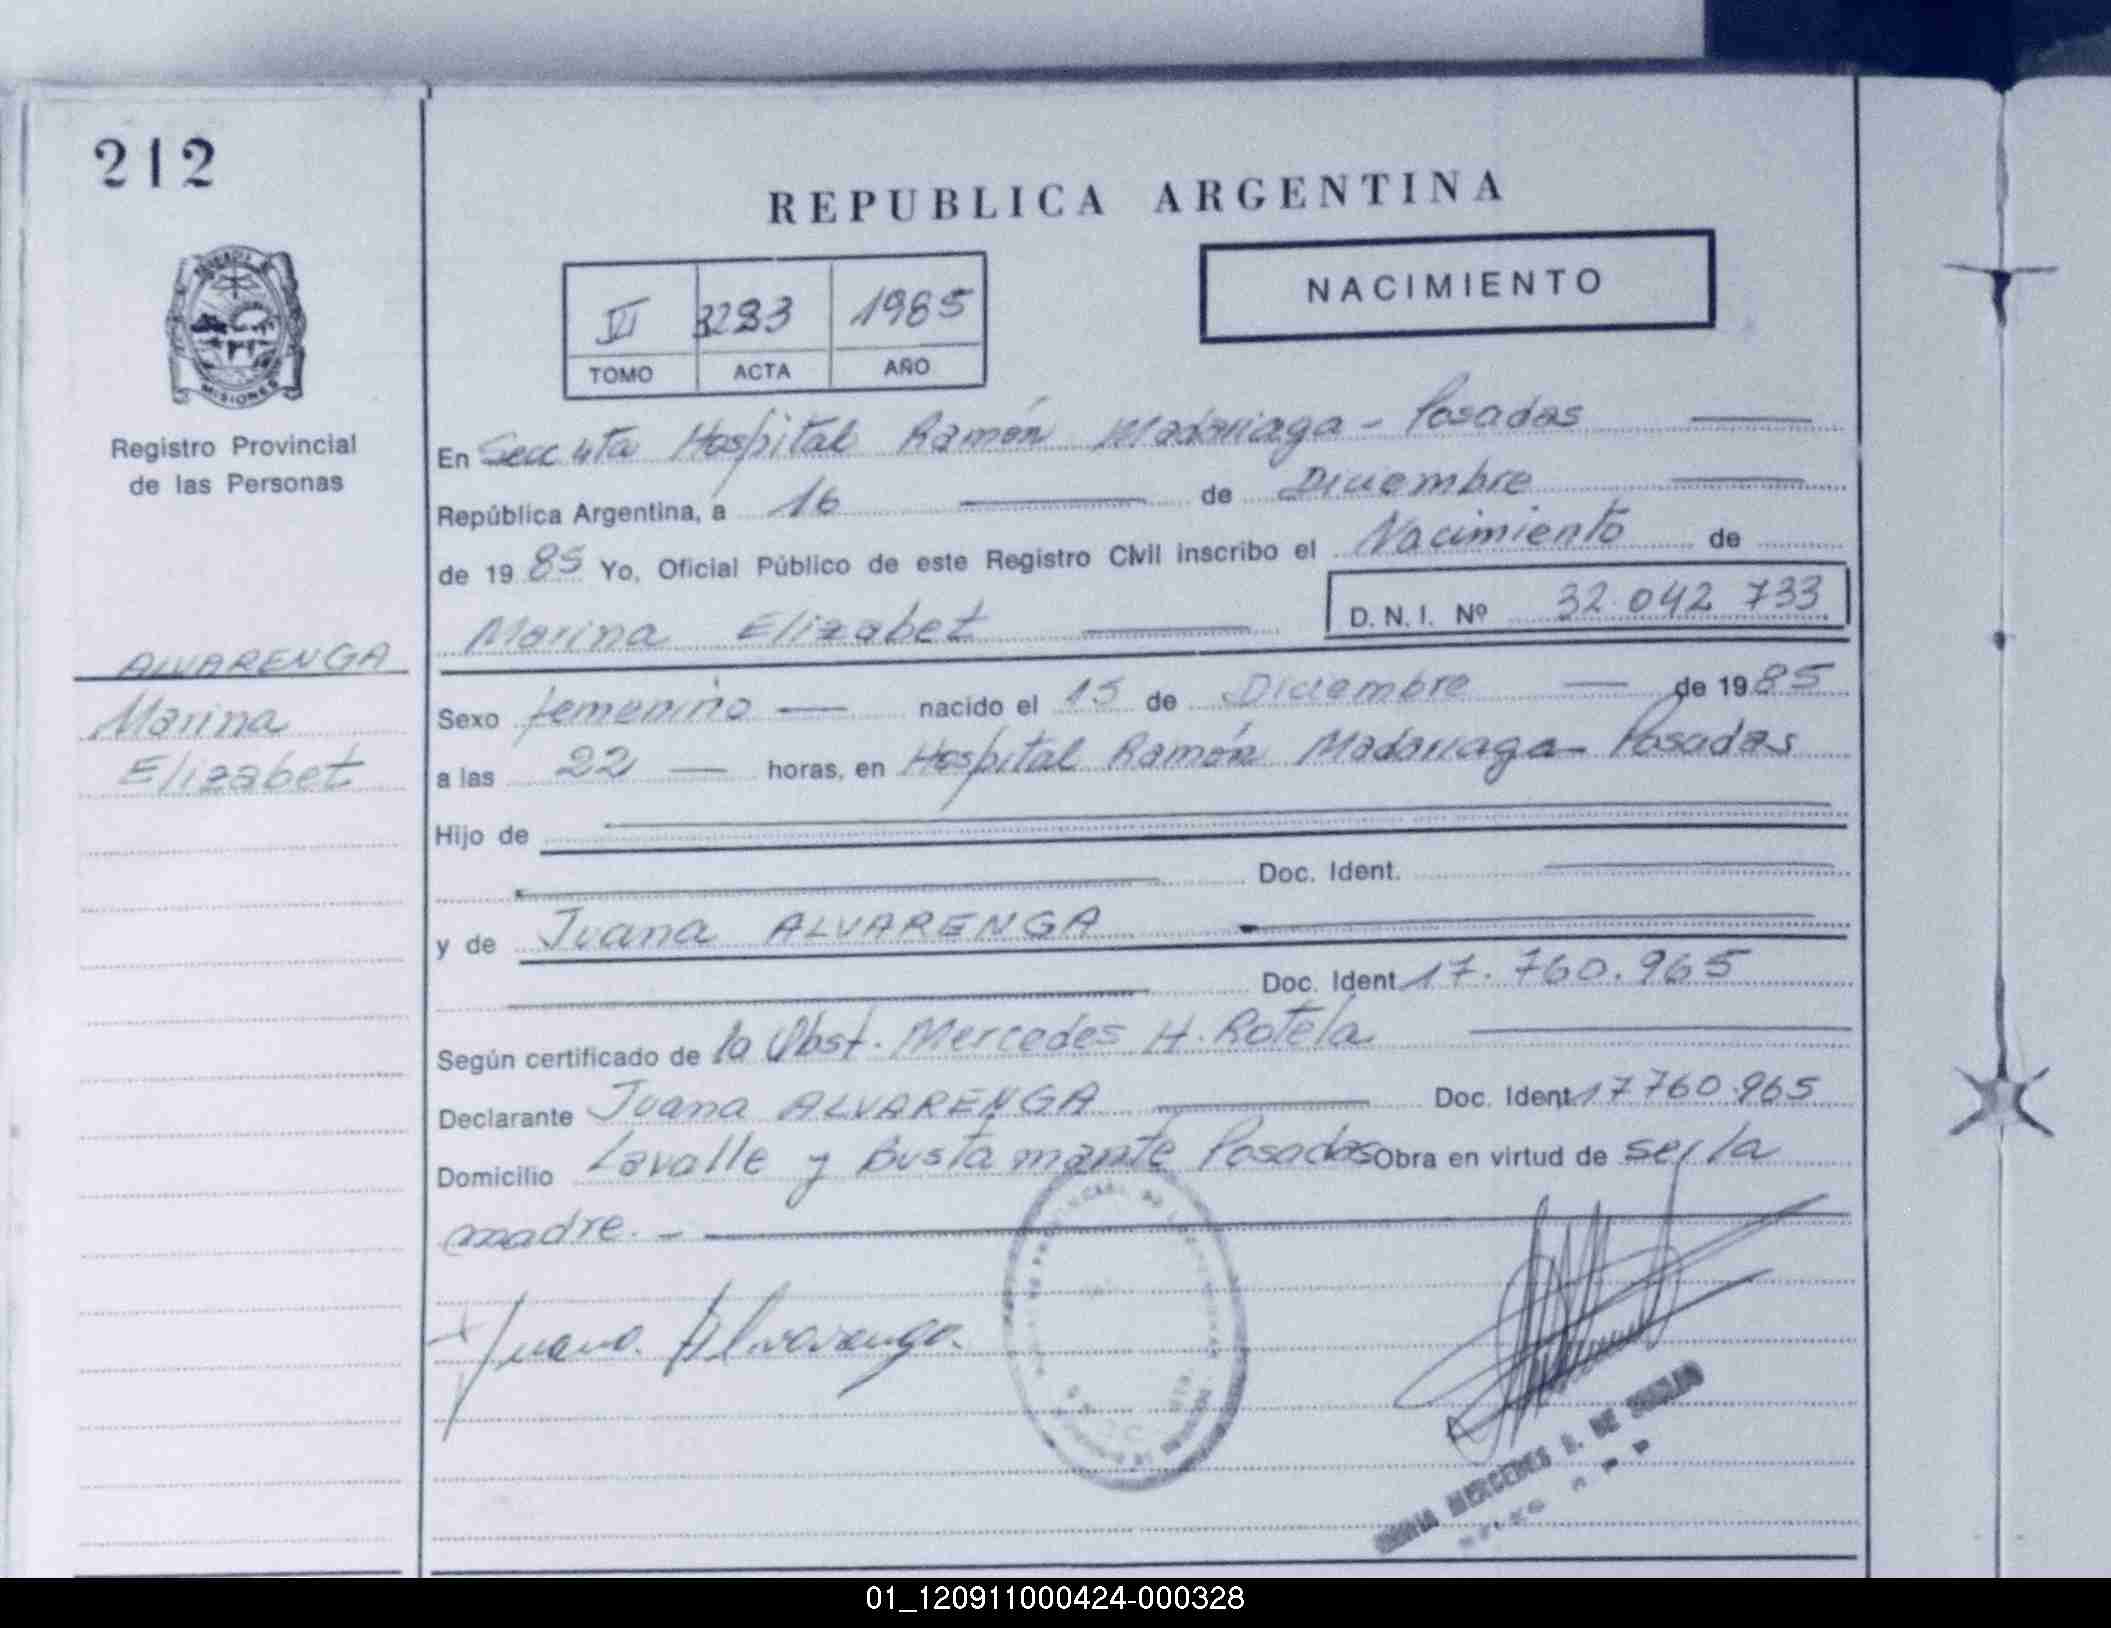 212
REPUBLICA ARGENTINA
NACIMIENTO
VI 3283 1985
TOMO ACTA AÑO
MISIONES
Registro Provincial
de las Personas
ALVARENGA
Marina
Elizabet
En Secc 4ta Hospital Ramón Madariaga - Posadas
República Argentina, a 16 de Diciembre
de 1985 Yo, Oficial Público de este Registro Civil inscribo el Nacimiento de
Marina Elizabet D. N. I. Nº 32.042.733
Sexo femenino — nacido el 15 de Diciembre — de 1985
a las 22 — horas, en Hospital Ramón Madariaga - Posadas
Hijo de
Doc. Ident.
y de Juana ALVARENGA
Doc. Ident 17.760.965
Según certificado de la Obst. Mercedes H. Rotela
Declarante Juana ALVARENGA Doc. Ident 17760.965
Domicilio Lavalle y Bustamante Posadas Obra en virtud de ser la
madre. -
Juana Alvarenga.
MARIA MERCEDES DE
01_120911000424-000328